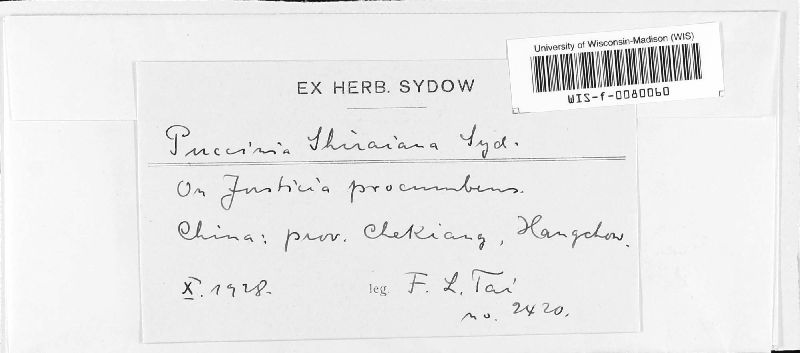 University of Wisconsin-Madison (WIS)
WIS-f-0080060
EX HERB. SYDOW
Puccinia Shiraiana Syd.
On Justicia procumbens.
China: prov. Chekiang, Hangchow.
X. 1928. leg. F. L. Tai
no. 2420.